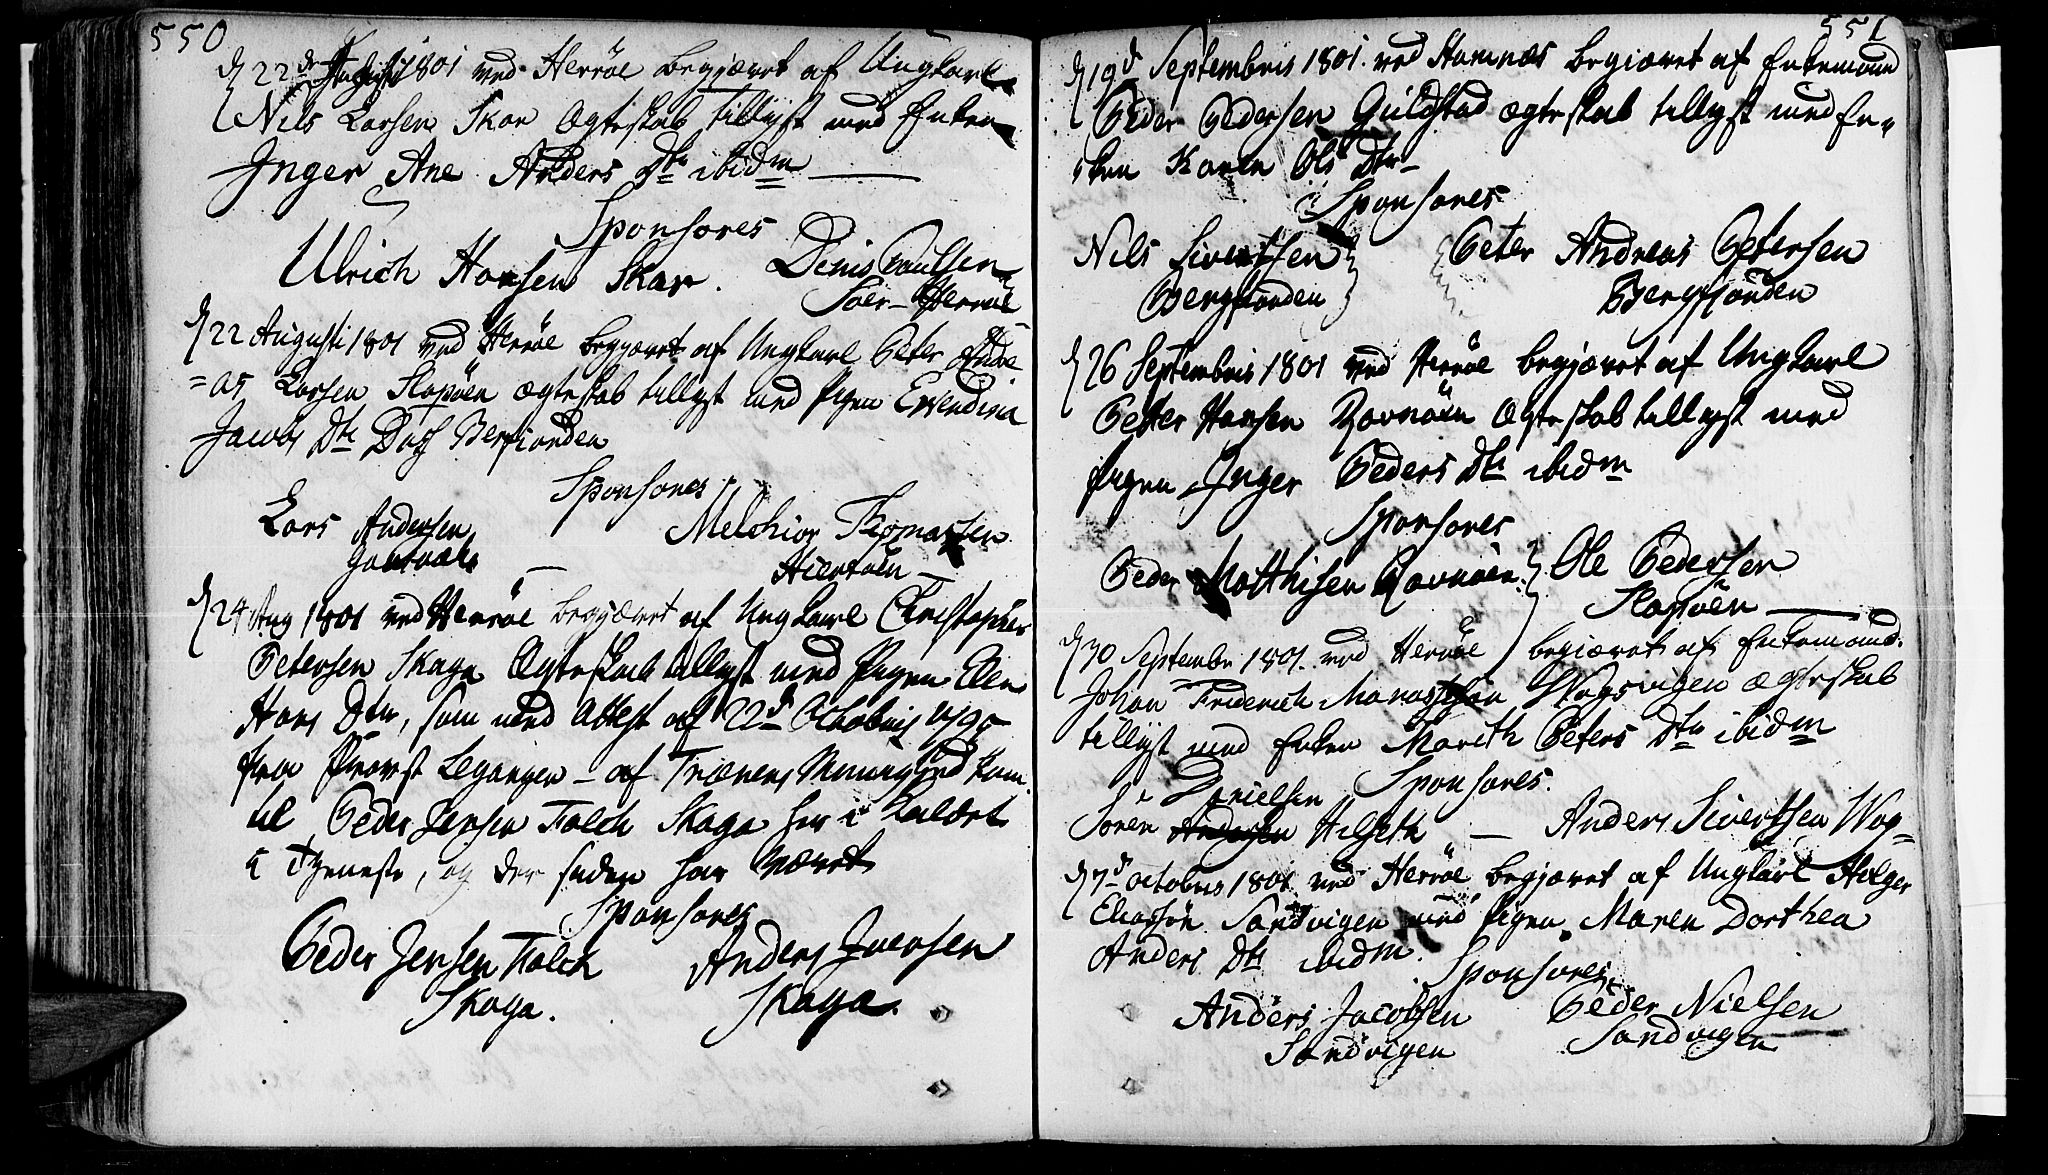 550
d 22de 1801 ved Herröe begjæret af Ungkarl
Nils Larsen Skar Ægteskab tillyst med Enken
Inger Ane Anders Dtr ibidm
Sponsores
Ulrich Hansen Skar. Denis Paulsen
Söer-Herröe
d 22 Augusti 1801 ved Herröe begjæret af Ungkarl Peter Andre
=as Larsen Slapöen ægteskab tillyst med Pigen
Jacobs Dtr
Sponsores
Lars Andersen Melchior Thomassen
Hiertöen
d 24 Aug 1801 ved Herröe begjæret af Ungkarl Christopher
Petersen Skaga Ægteskab tillyst med Pigen Elen
Hans Dtr, som med Attest af 22d Octobris
fra Provst Legangen - af Trænens Menighed kom
til Peder Jensen Falch Skaga her i Kaldet
i Tjeneste, og der siden har været
Sponsores
Peder Jensen Falch Anders Iversen
Skaga. Skaga.
551
d 19d Septembris 1801. ved Hamnæs begiæret af Enkemand
Peder Pedersen Guldstad ægteskab tillyst med En„
„ken Karen Ols Dtr
Sponsores
Nils Sivertsen Peter Andreas Petersen
Bergfjorden Bergfjorden
d 26 Septembris 1801 ved Herröe begjæret af Ungkarl
Petter Hansen Ravnöen Ægteskab tillyst med
Pigen Inger Peders Dtr ibidm
Sponsores
Peder Matthisen Ravnöen. Ole Pedersen
Slapöen
d 30 Septembr 1801. ved Herröe begiæret af Enkemand.
Johan Friderich Manassesön Wogsvigen ægteskab
tillyst med Enken Marith Peters Dtr ibidm
Danielsen Sponsores.
Sören Andersen Hilseth - Anders Sivertsen Wog=
d 7d octobris 1801 ved Herröe begjæret af Ungkarl Holger
Eliassön Sandvigen med Pigen Maren Dorthea
Anders Dtr ibidm.
Sponsores
Anders Jacobsen Peder Nielsen
Sandvigen Sandvigen